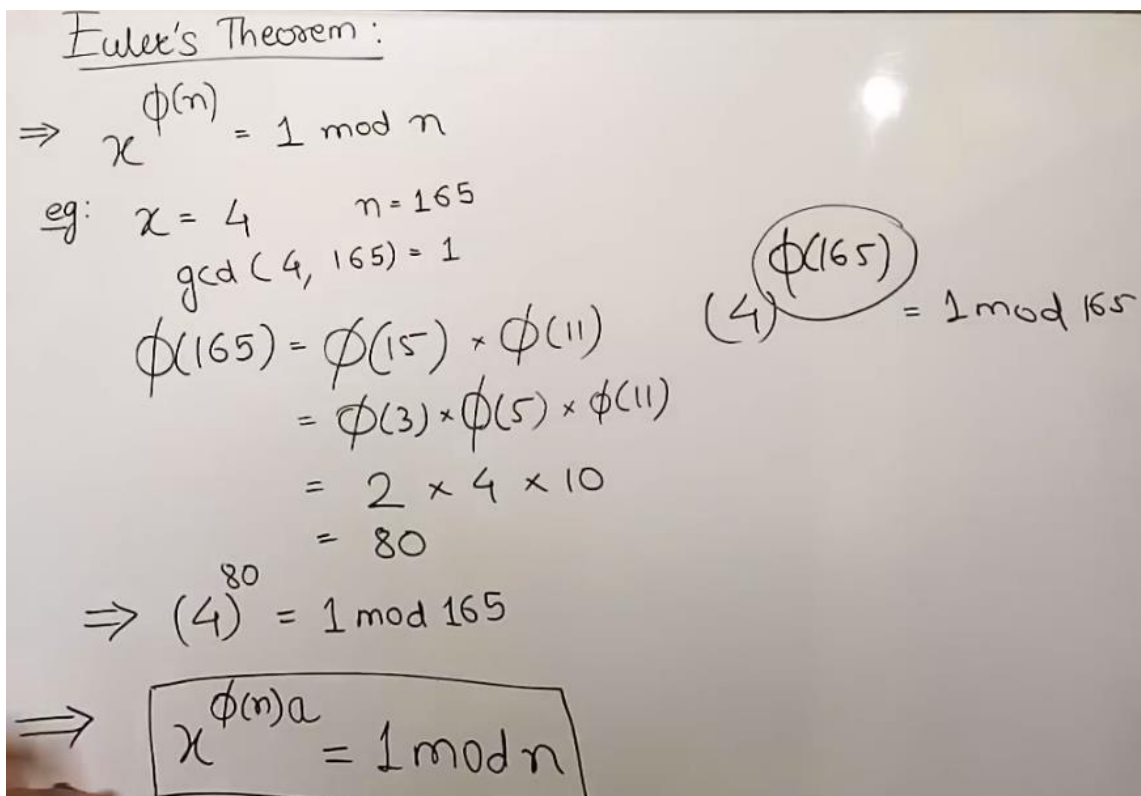 Euler's Theorem :
⇒ x^ϕ(n) = 1 mod n
eg: x = 4 n = 165
gcd ( 4, 165) = 1
ϕ(165) = ϕ(15) × ϕ(11)
= ϕ(3) × ϕ(5) × ϕ(11)
= 2 × 4 × 10
= 80
⇒ (4)^80 = 1 mod 165
⇒ x^ϕ(n)a = 1 mod n
(4)^ϕ(165) = 1 mod 165